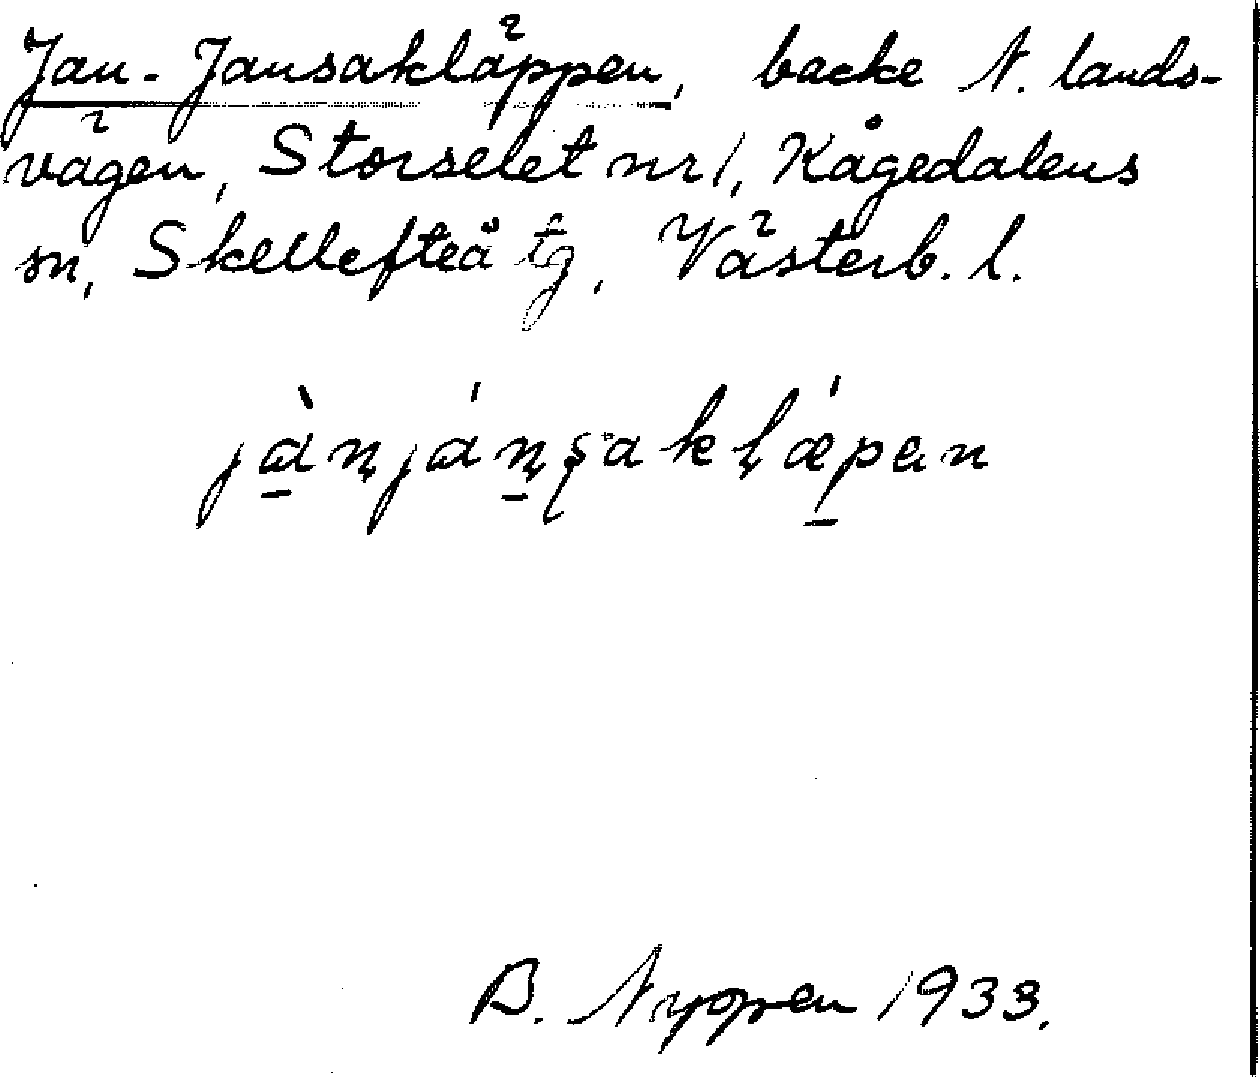 Jan-Jansakläppen, backe N. lands-
vägen, Storselet nr 1, Kågedalens
sn, Skellefteå tg, Västerb. l.
jànjánsaklǽpen
B. Nyopen 1933.